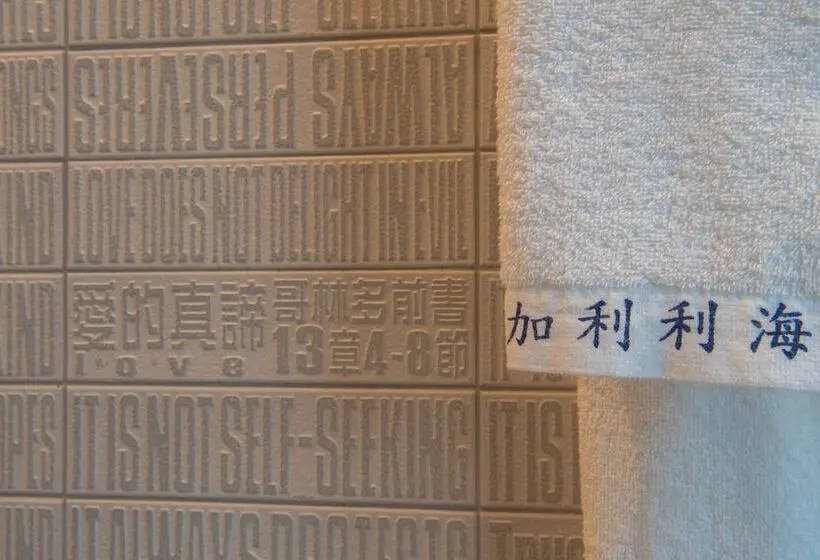 ONGS
ALWAYS PERSEVERES
IND
LOVE DOES NOT DELIGHT IN EVIL
IND
愛的真諦
love
哥林多前書
13章4-8節
加利利海
OPES
IT IS NOT SELF-SEEKING
IT IS
IND
IT ALWAYS PROTECTS
TRUS